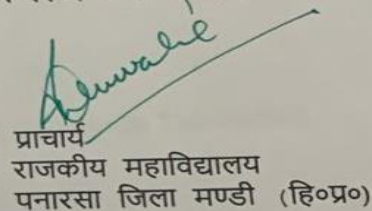 प्राचार्य
राजकीय महाविद्यालय
पनारसा जिला मण्डी (हि०प्र०)